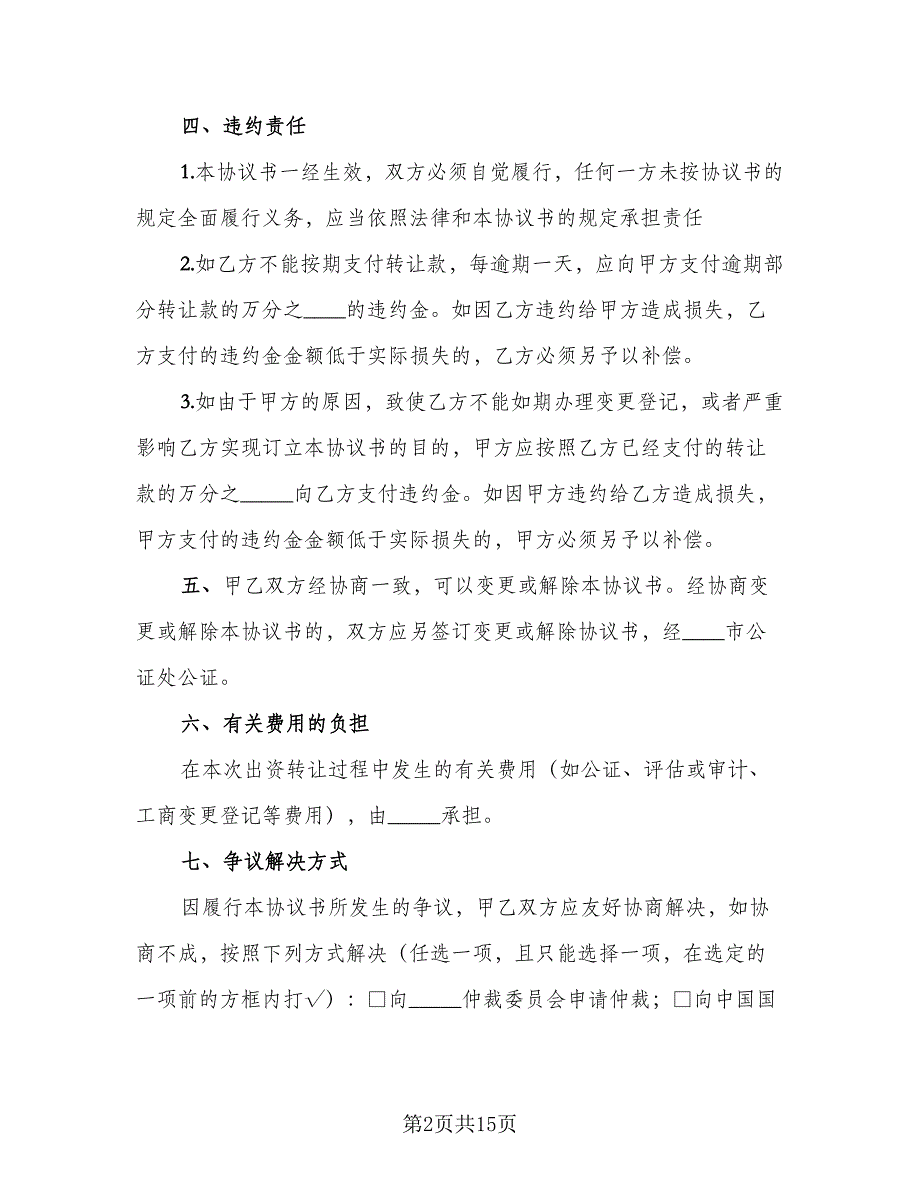 四、违约责任
1.本协议书一经生效，双方必须自觉履行，任何一方未按协议书的
规定全面履行义务，应当依照法律和本协议书的规定承担责任
2.如乙方不能按期支付转让款，每逾期一天，应向甲方支付逾期部
分转让款的万分之____的违约金。如因乙方违约给甲方造成损失，乙
方支付的违约金金额低于实际损失的，乙方必须另予以补偿。
3.如由于甲方的原因，致使乙方不能如期办理变更登记，或者严重
影响乙方实现订立本协议书的目的，甲方应按照乙方已经支付的转让
款的万分之_____向乙方支付违约金。如因甲方违约给乙方造成损失，
甲方支付的违约金金额低于实际损失的，甲方必须另予以补偿。
五、甲乙双方经协商一致，可以变更或解除本协议书。经协商变
更或解除本协议书的，双方应另签订变更或解除协议书，经____市公
证处公证。
六、有关费用的负担
在本次出资转让过程中发生的有关费用（如公证、评估或审计、
工商变更登记等费用），由_____承担。
七、争议解决方式
因履行本协议书所发生的争议，甲乙双方应友好协商解决，如协
商不成，按照下列方式解决（任选一项，且只能选择一项，在选定的
一项前的方框内打√）：□向_____仲裁委员会申请仲裁；□向中国国
第2页共15页